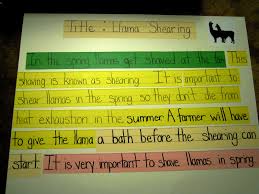 Title : Llama Shearing
In the spring llamas get shaved at the farm This
shaving is known as shearing. It is important to
shear llamas in the spring so they don't die from
heat exhaustion in the summer A farmer will have
to give the llama a bath before the shearing can
start. It is very important to shave llamas in spring.